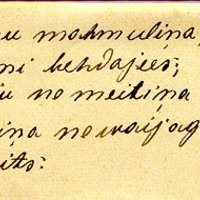 u mahmulina,
ni behdajees;
u no meitina
ina nowaijag
its: